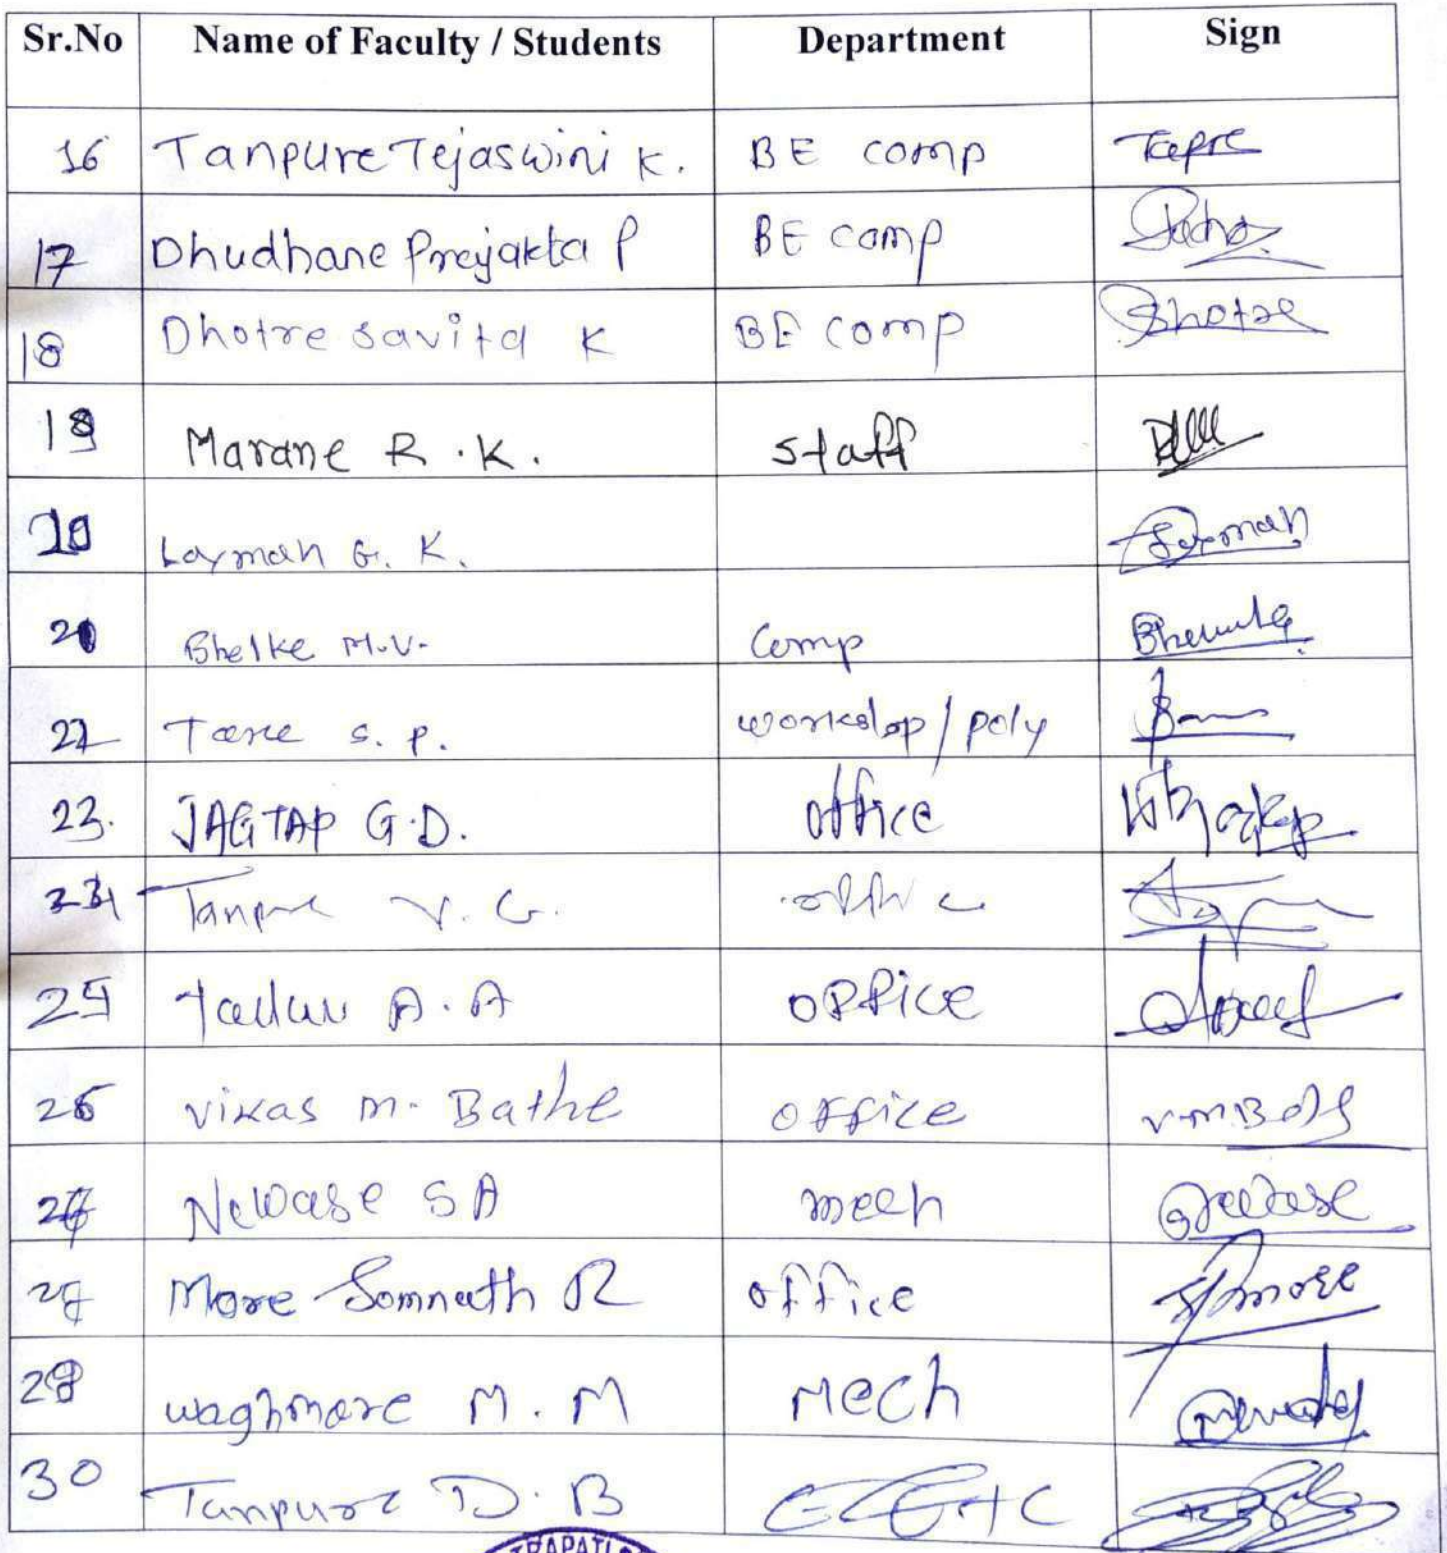 Sr.No Name of Faculty / Students Department Sign
16 Tanpure Tejaswini K. BE comp
17 Dhudhane Prajakta P BE comp
18 Dhotre Savita K BE comp Dhotre
19 Marane R.K. staff
20 Laxman G. K. Laxman
21 Bhelke M.V. Comp
22 Tare S. P. workshop/poly
23. JAGTAP G.D. office
24 Tanpure V. G. office
25 A. A office
26 vikas m. Bathe office
27 Newase SA mech
28 More Somnath R office
29 waghmare M. M Mech
30 Tanpure D. B E&TC